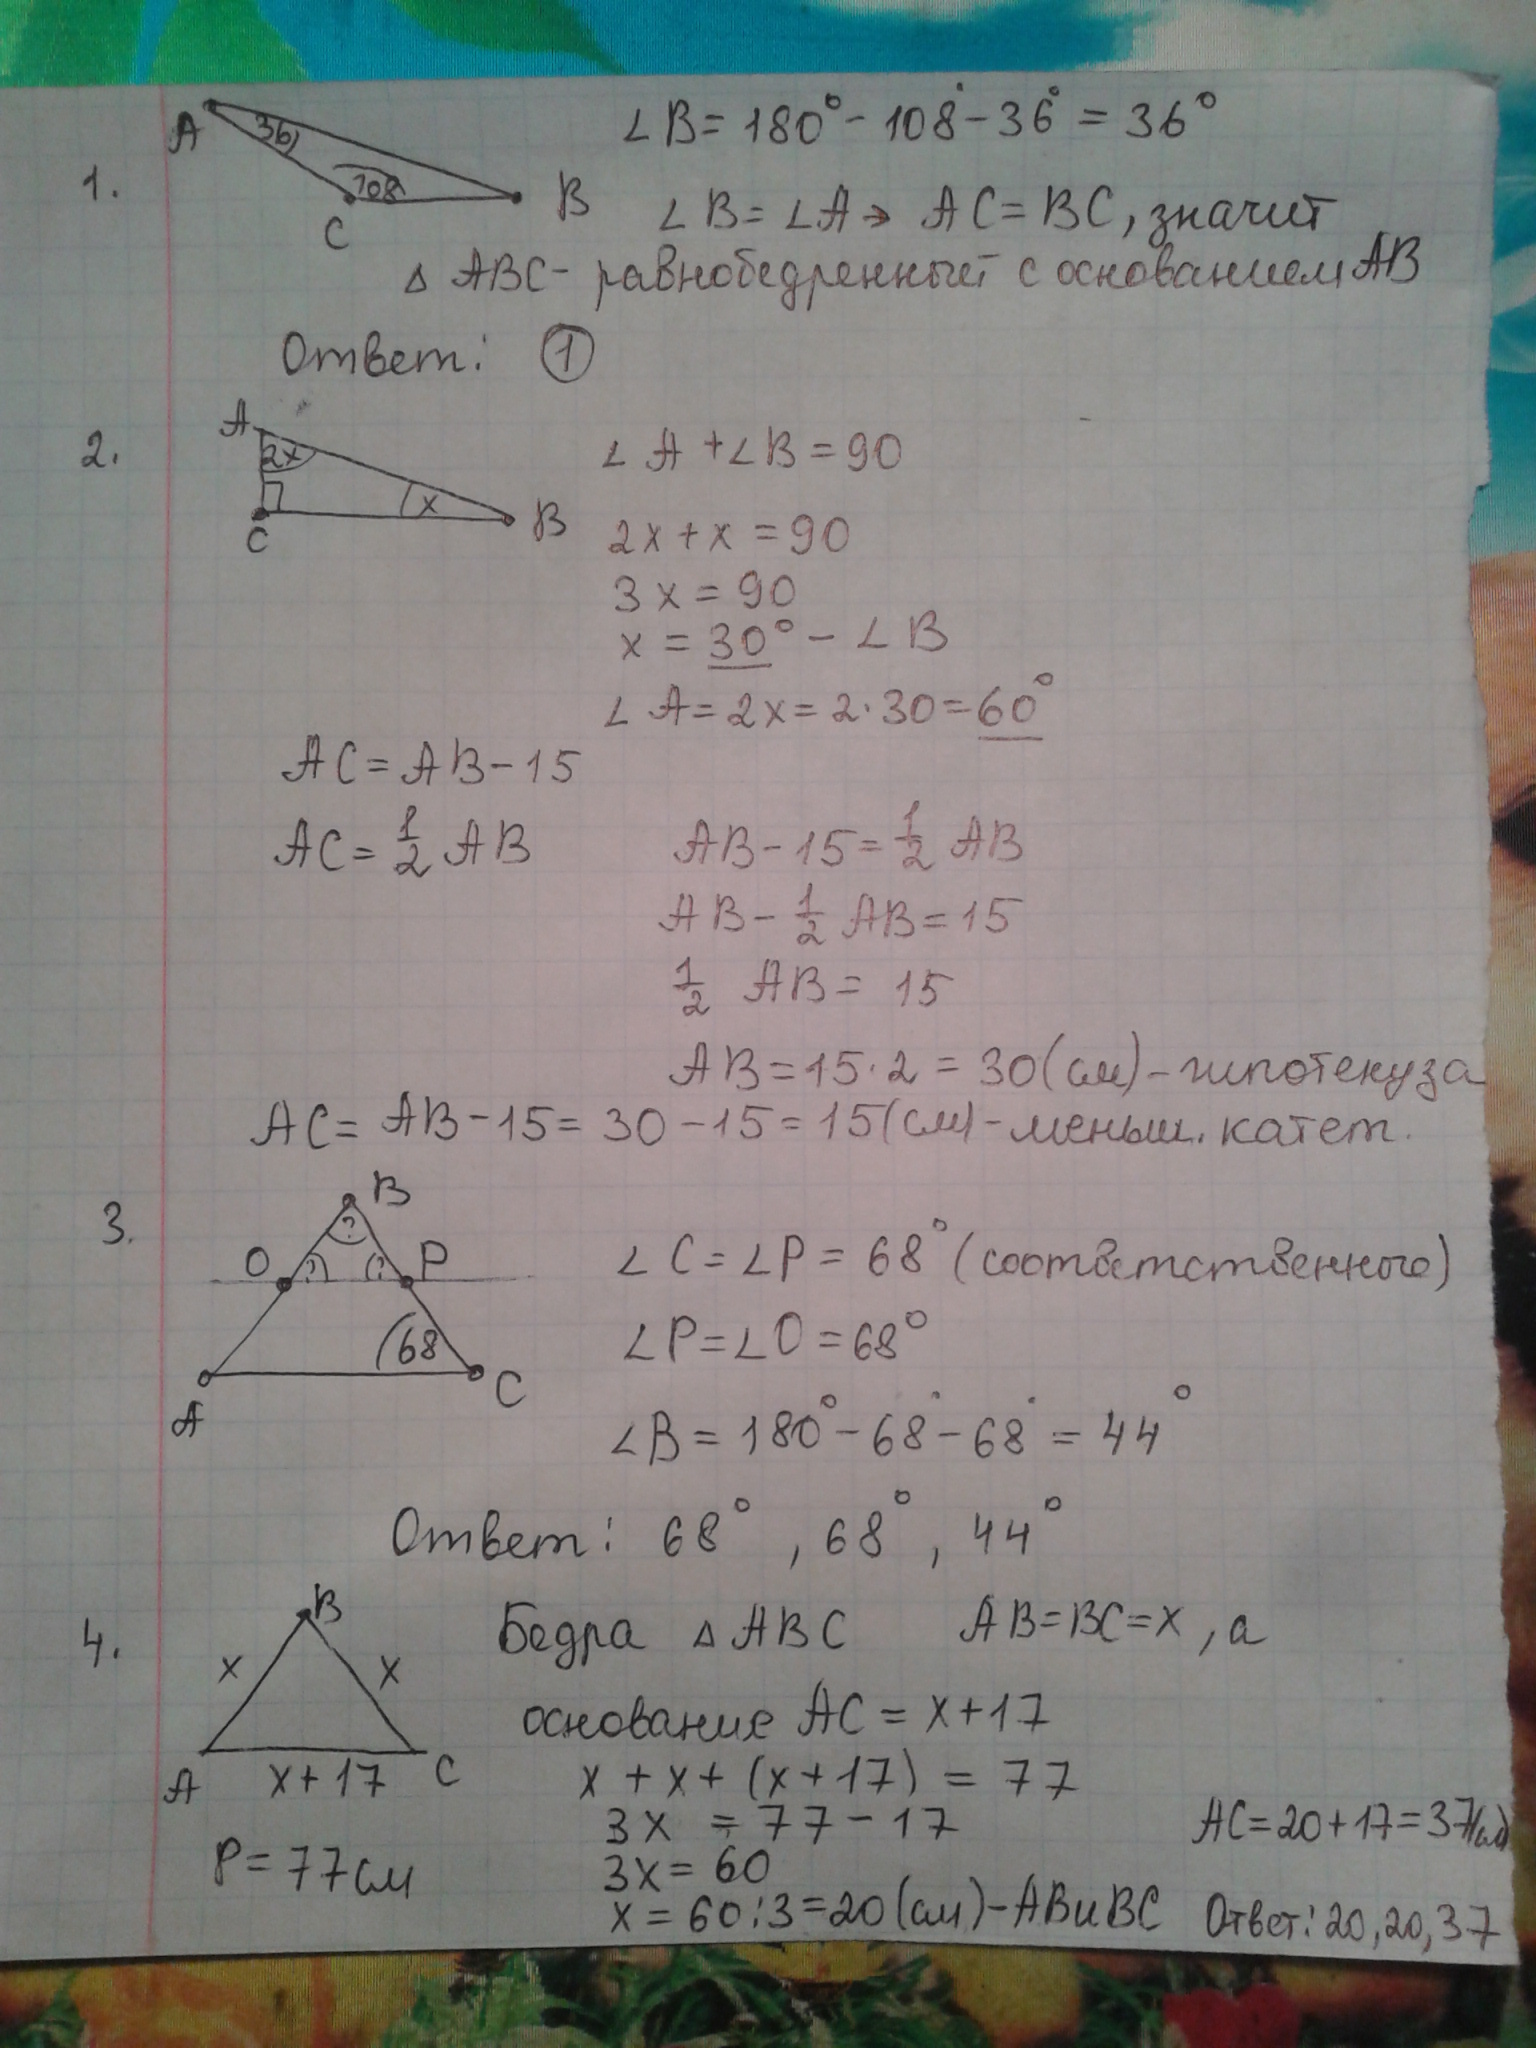 1.
A 36 108 C B
∠B = 180° - 108° - 36° = 36°
∠B = ∠A → AC = BC, значит
△ ABC - равнобедренный с основанием AB
Ответ: 1
2.
A 2x x C B
∠A + ∠B = 90
2x + x = 90
3x = 90
x = 30° - ∠B
∠A = 2x = 2·30 = 60°
AC = AB - 15
AC = 1/2 AB
AB - 15 = 1/2 AB
AB - 1/2 AB = 15
1/2 AB = 15
AB = 15·2 = 30 (см) - гипотенуза
AC = AB - 15 = 30 - 15 = 15 (см) - меньш. катет.
3.
B ? O ? ? P 68 A C
∠C = ∠P = 68° (соответственного)
∠P = ∠O = 68°
∠B = 180° - 68° - 68° = 44°
Ответ: 68°, 68°, 44°
4.
B x x A x + 17 C
P = 77 см
Бедра △ ABC AB = BC = x, а
основание AC = x + 17
x + x + (x + 17) = 77
3x = 77 - 17
3x = 60
x = 60:3 = 20 (см) - AB и BC
AC = 20 + 17 = 37 (см)
Ответ: 20, 20, 37